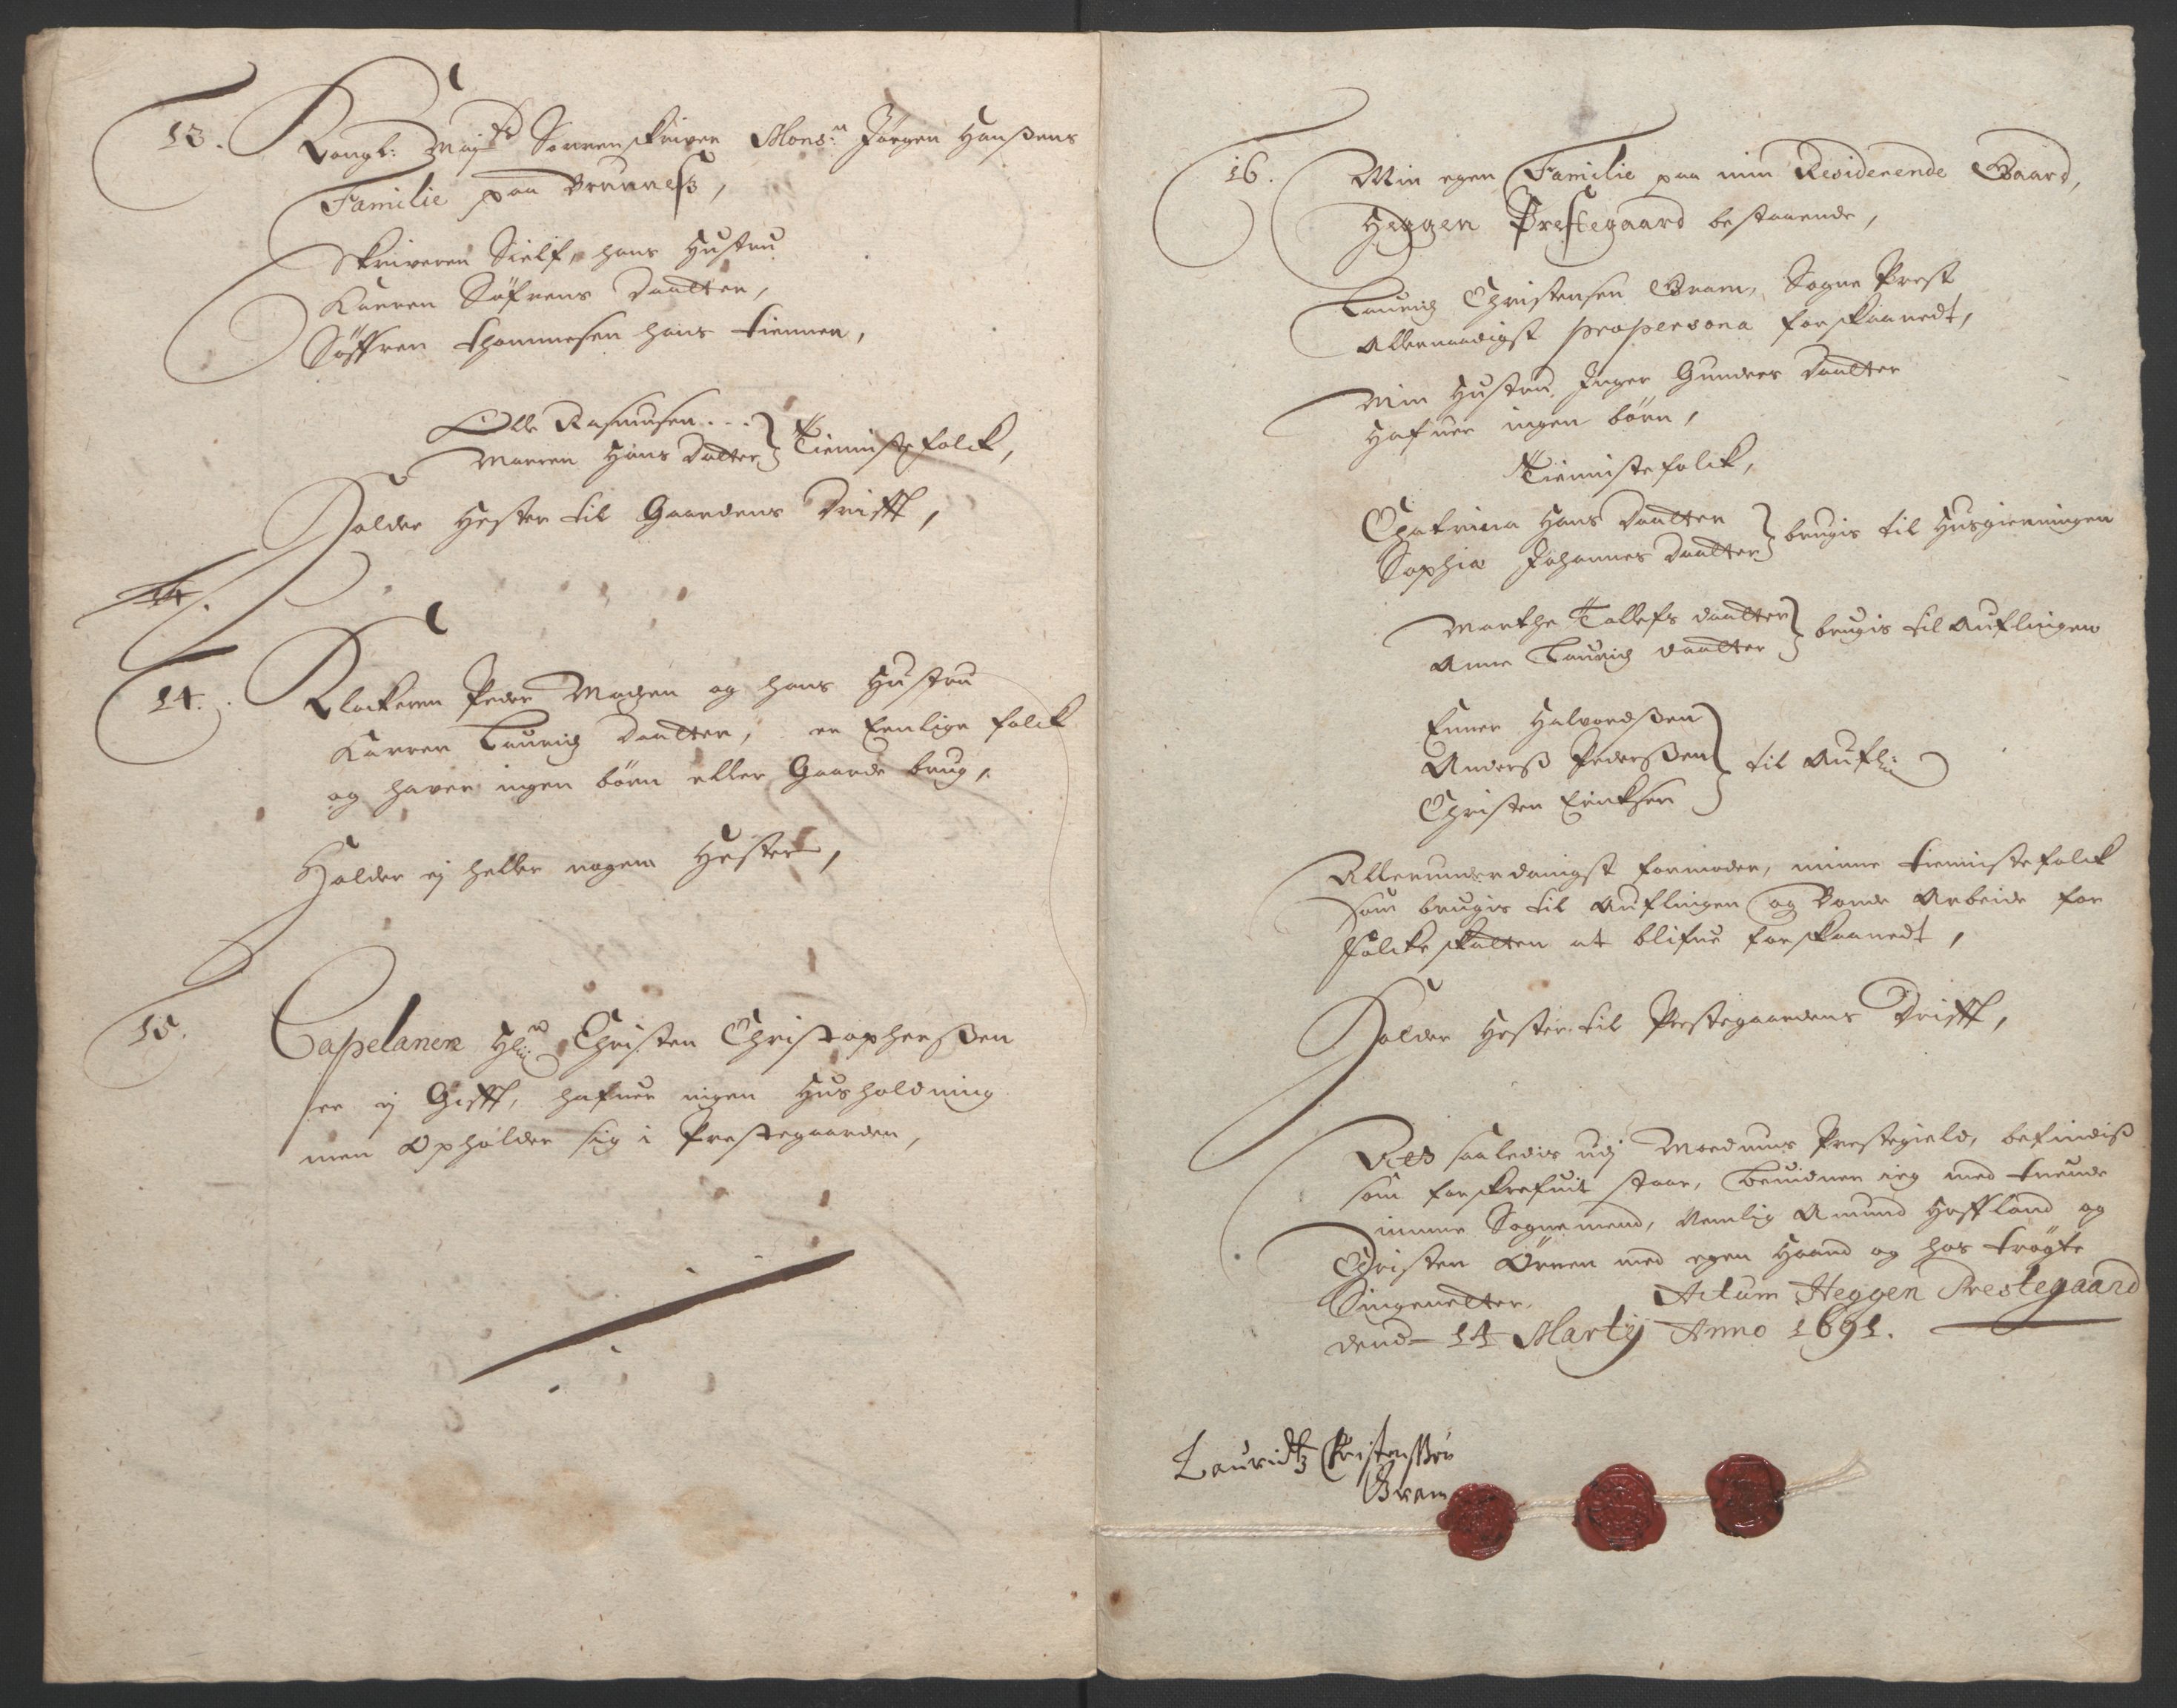 13. Kongl: Maytz Sorrenskriver Mons:r Jørgen Hanßens
Familie paa Brunneß,
Skriveren Sielf, hans Hustru
Karren Søfrens Daatter,
Søffren Thommesen hans tienner,
Olle Rasmusen . . .
Marren Hans Datter } Tienniste folck,
Holder Hester til Gaardens Drifft,
14.
14. Klockeren Peder Madzen og hans Hustru
Karren Lauridz Daatter, er Eenlige folck
og haver ingen børn eller Gaarde brug,
Holder ej heller nogen Hester,
15. Capelanen Hr: Christen Christophersßen
er ej Gifft, hafuer ingen Husholdning
men Opholder sig i Prestegaarden,
16. Min egen Familie paa min Residerende Gaard,
Heggen Prestegaard bestaaende,
Lauridz Christensen Gram, Sogne Prest
Allernaadigst propersona forskaanedt,
Min Hustru Inger Gunders Daatter
Hafuer ingen børn,
Tiennistefolck,
Chatrina Hans Daatter
Sophia Johannes Daatter } brugis til Husgierningen
Marthe Tollefs daatter
Anne Lauridz daatter } brugis til Auflingen
Enner Halvordßen
Anderß Pederßen } til Aufl:
Christen Ericksen
Allerunderdanigst formoder, minne tiennistefolck
som brugis til Auflingen og Bonde Arbeide for
folckeskatten at blifue forskaanedt,
Holder Hester til Prestegaardens Drifft,
Det saaledis udj Modums Prestegield, befindiß
som forskrefuit staar, Bevidner ieg med tvende
minne Sognemend, Nemlig Amund Hoffland og
Christen Ørnen med egen Haand og hos trøgte
Singenetter. Actum Heggen Prestegaard
dend 14 Martij Anno 1691.
Lauridtz Christenßøn
Gram